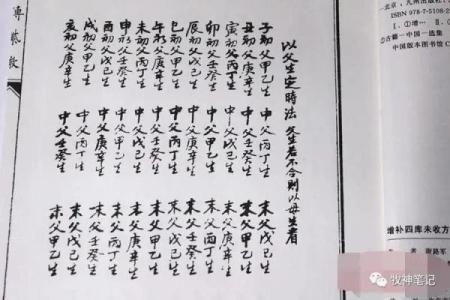 以父生定時法 父生若不合則以母生者
子初父甲乙生 中父丙丁生 末父戊己生
丑初父庚辛生 中父壬癸生 末父甲乙生
寅初父丙丁生 中父戊己生 末父庚辛生
卯初父壬癸生 中父甲乙生 末父丙丁生
辰初父戊己生 中父庚辛生 末父壬癸生
巳初父甲乙生 中父丙丁生 末父戊己生
午初父庚辛生 中父壬癸生 末父甲乙生
未初父丙丁生 中父戊己生 末父庚辛生
申初父壬癸生 中父甲乙生 末父丙丁生
酉初父戊己生 中父庚辛生 末父壬癸生
戌初父甲乙生 中父丙丁生 末父戊己生
亥初父庚辛生 中父壬癸生 末父甲乙生
北京：九州出版社
ISBN 978-7-5108-2
Ⅰ．①增…
①古籍－中国－选集
中国版本图书馆C
增补四库未收方
牧神笔记